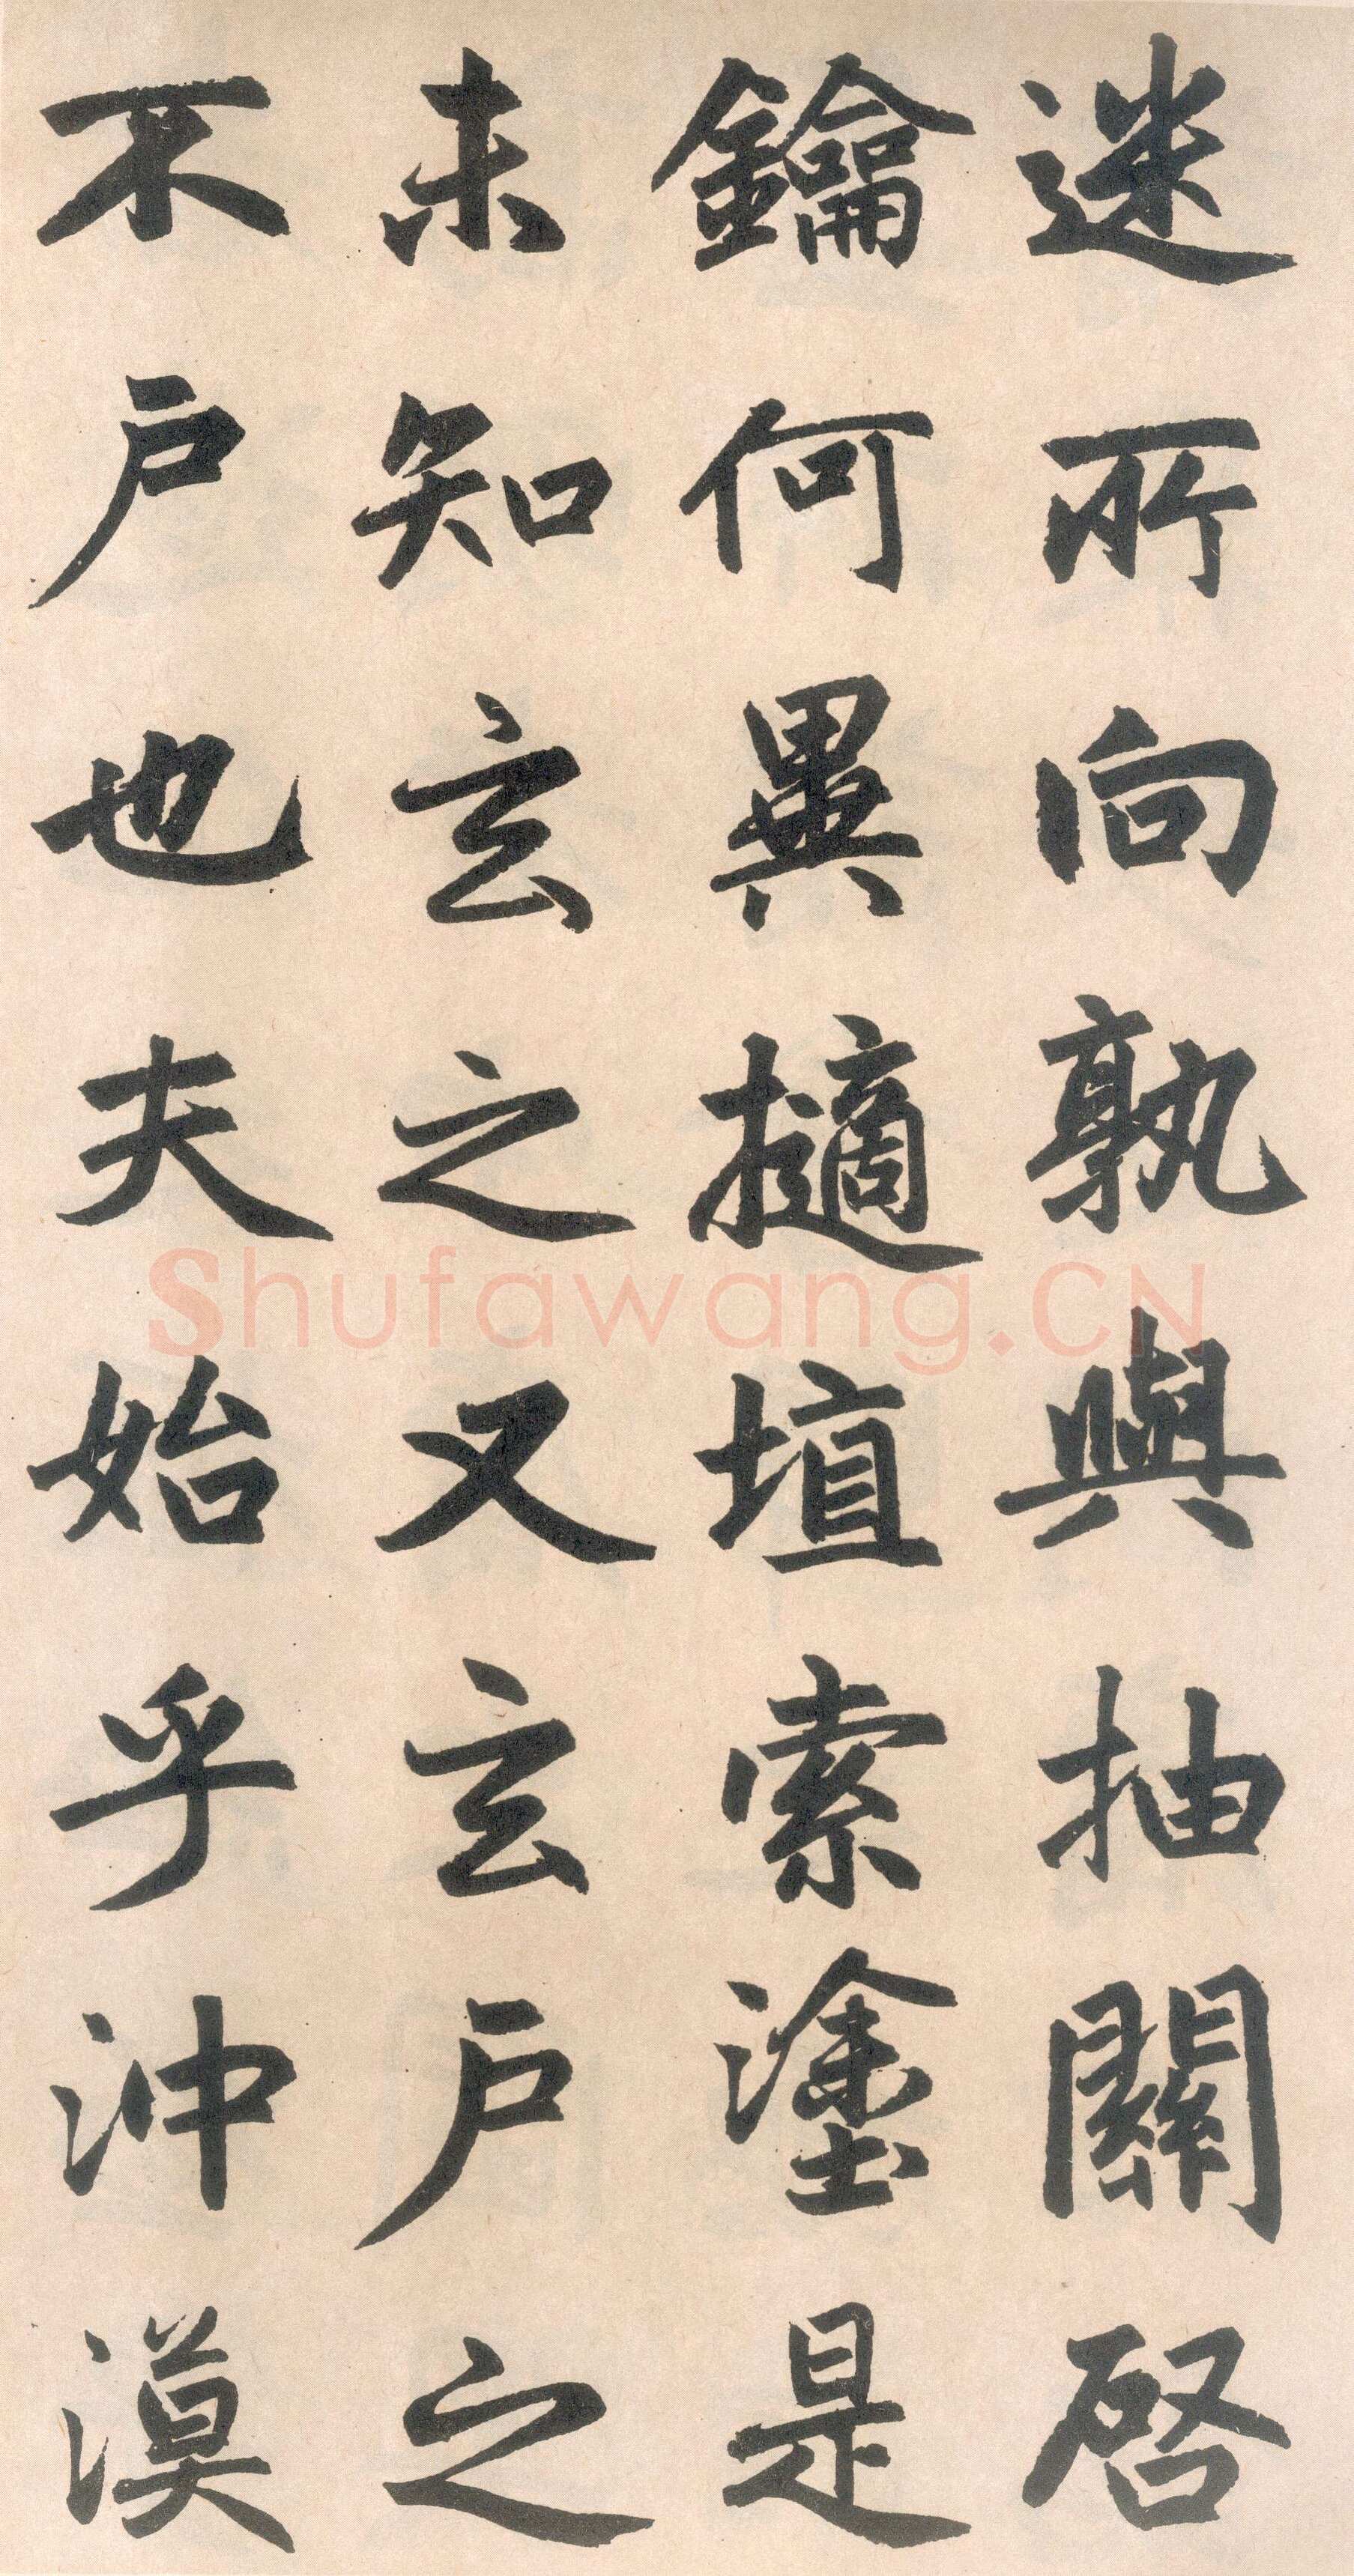 迷所向孰與抽關啓
鑰何異擿埴索塗是
未知玄之又玄戶之
不戶也夫始乎沖漠
Shufawang.CN